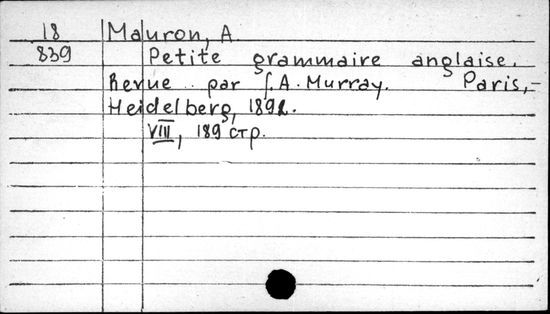 18 Mauron, A.
839 Petite grammaire anglaise.
Revue par J. A. Murray. Paris,-
Heidelberg, 1892.
VIII, 189 стр.